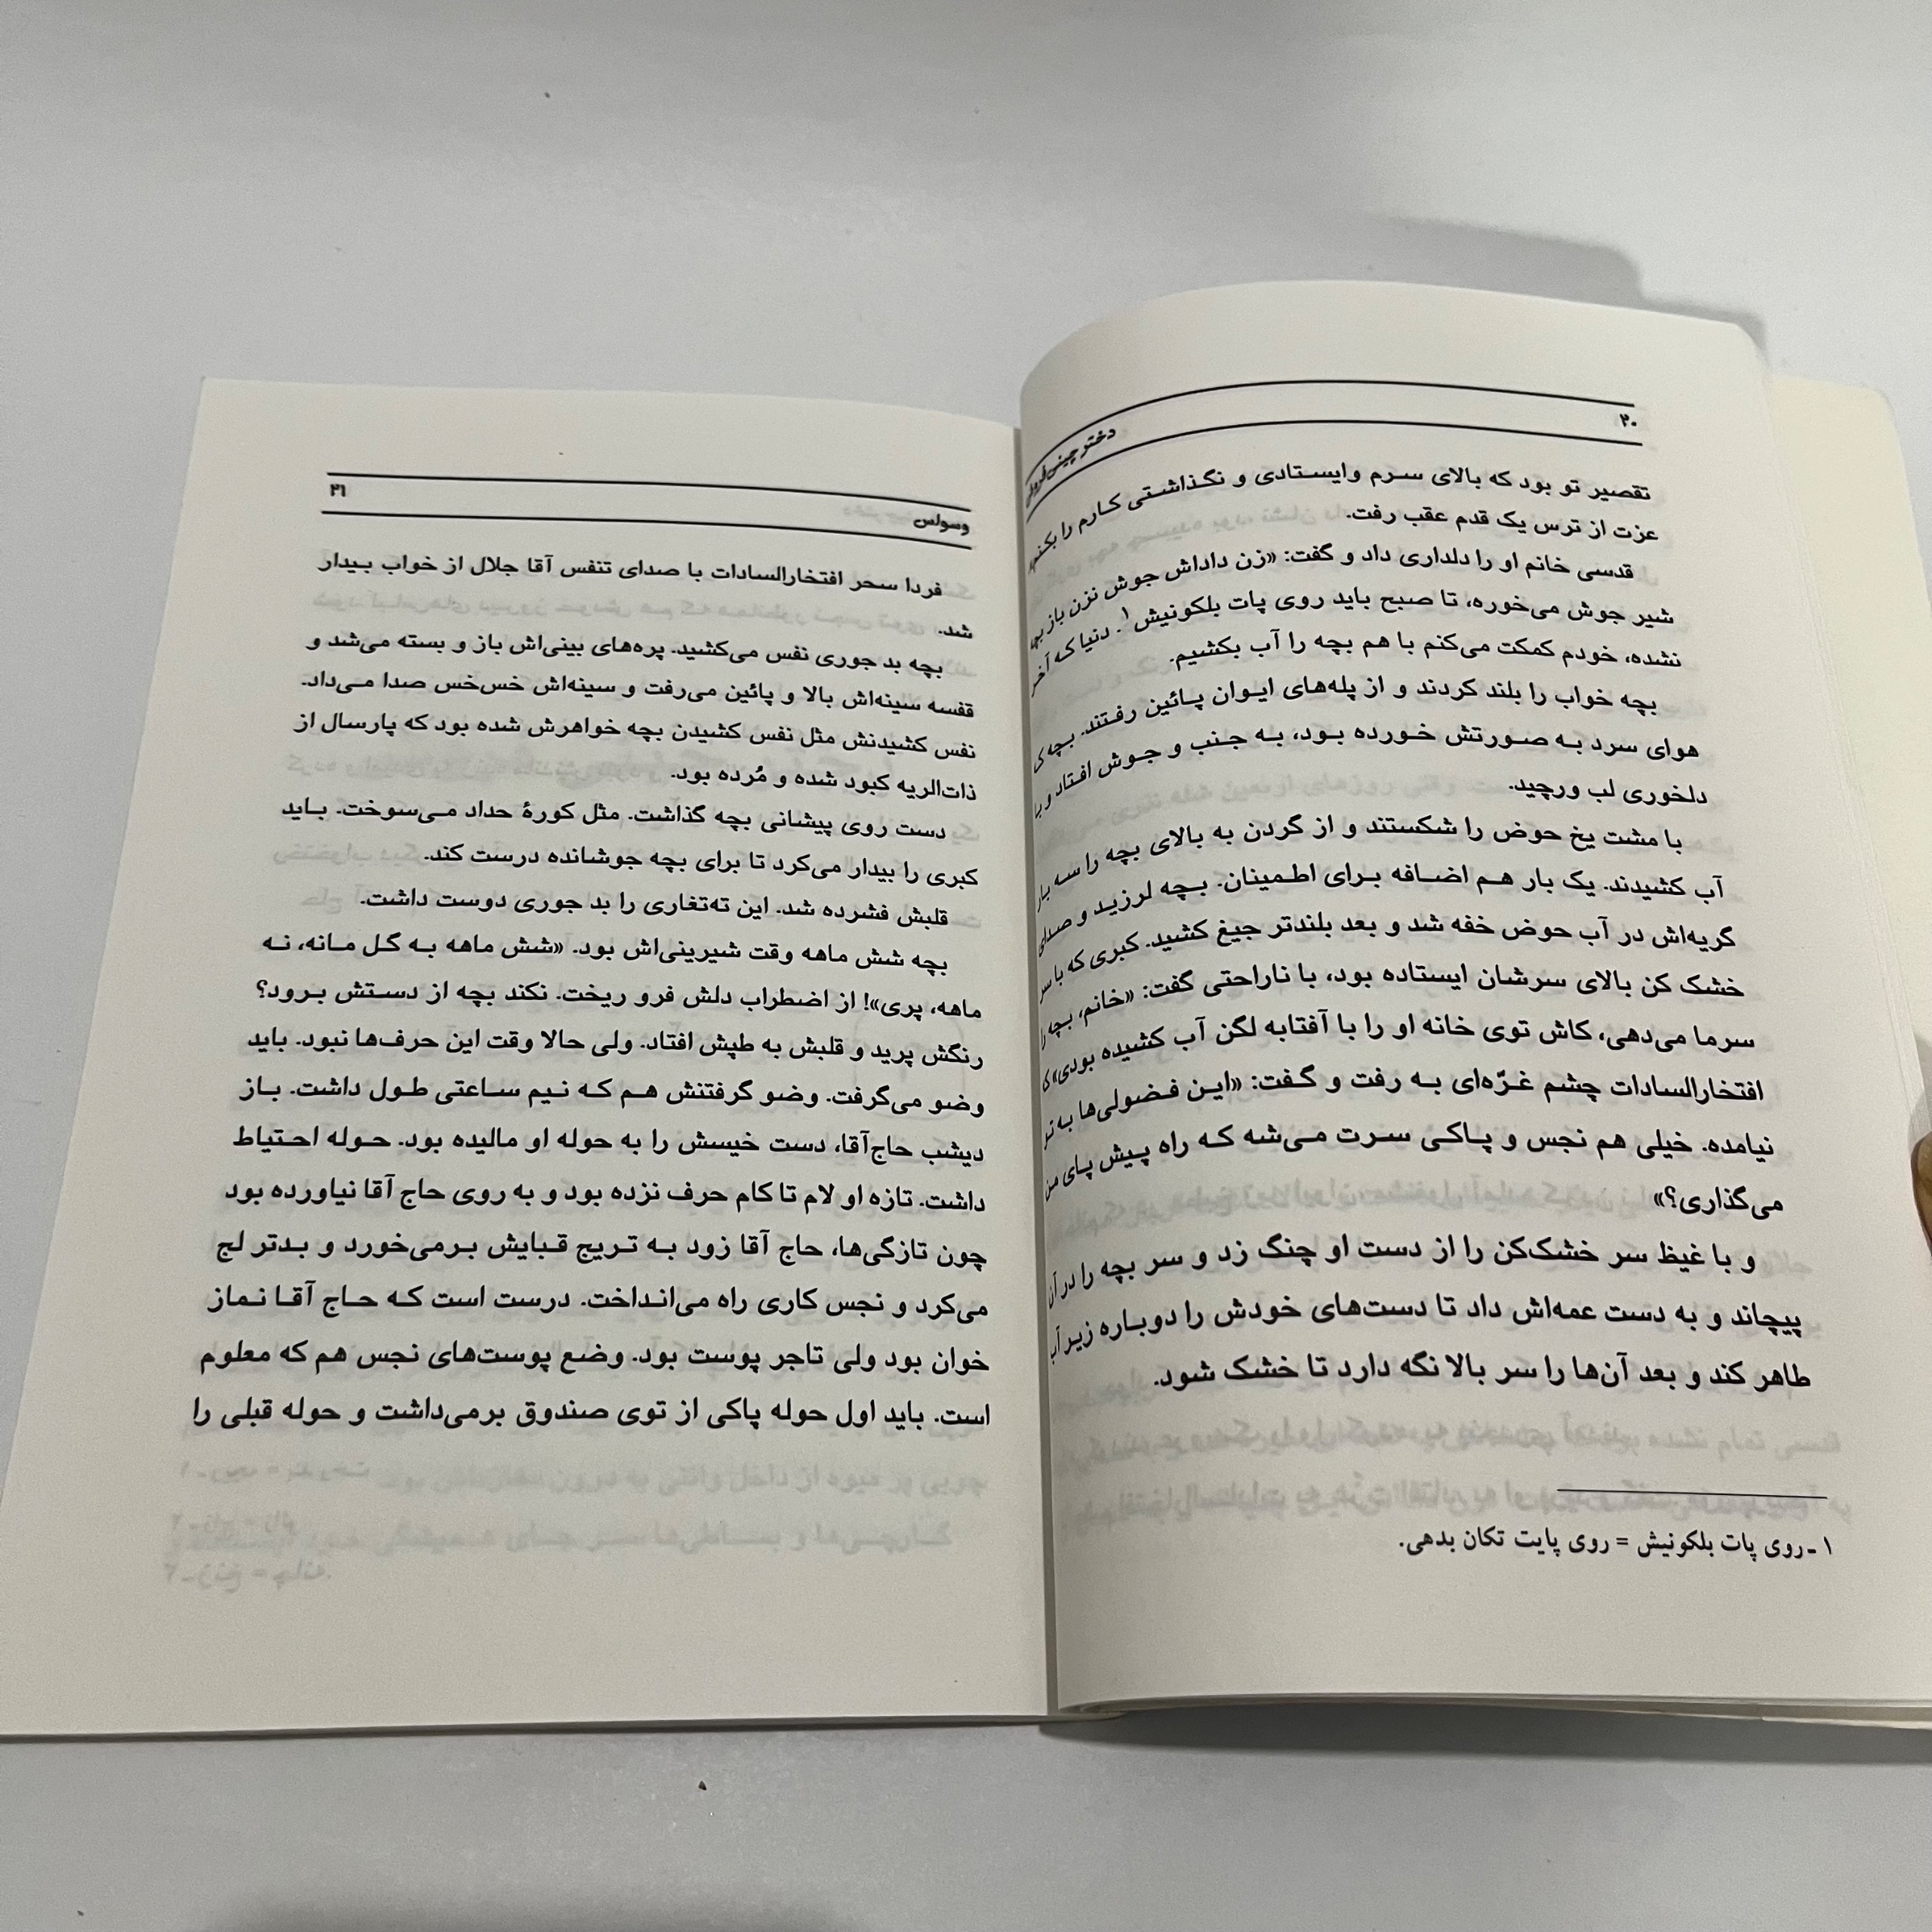 ۲۰
دختر چینی‌فروش
تقصیر تو بود که بالای سرم وایستادی و نگذاشتی کارم را بکنم»
عزت از ترس یک قدم عقب رفت.
قدسی خانم او را دلداری داد و گفت: «زن داداش جوش نزن باز بچه
شیر جوش می‌خوره، تا صبح باید روی پات بلکونیش۱. دنیا که آخر
نشده، خودم کمکت می‌کنم با هم بچه را آب بکشیم.
بچه خواب را بلند کردند و از پله‌های ایوان پائین رفتند. بچه
هوای سرد به صورتش خورده بود، به جنب و جوش افتاد و با
دلخوری لب ورچید.
با مشت یخ حوض را شکستند و از گردن به بالای بچه را سه بار
آب کشیدند. یک بار هم اضافه برای اطمینان. بچه لرزید و صدای
گریه‌اش در آب حوض خفه شد و بعد بلندتر جیغ کشید. کبری که با سر
خشک کن بالای سرشان ایستاده بود، با ناراحتی گفت: «خانم، بچه را
سرما می‌دهی، کاش توی خانه او را با آفتابه لگن آب کشیده بودی»
افتخارالسادات چشم غرّه‌ای به رفت و گفت: «این فضولی‌ها به تو
نیامده. خیلی هم نجس و پاکی سرت می‌شه که راه پیش پای من
می‌گذاری؟»
و با غیظ سر خشک‌کن را از دست او چنگ زد و سر بچه را در آن
پیچاند و به دست عمه‌اش داد تا دست‌های خودش را دوباره زیر آب
طاهر کند و بعد آن‌ها را سر بالا نگه دارد تا خشک شود.
۱ ـ روی پات بلکونیش = روی پایت تکان بدهی.
وسواس
۲۱
فردا سحر افتخارالسادات با صدای تنفس آقا جلال از خواب بیدار
شد.
بچه بد جوری نفس می‌کشید. پره‌های بینی‌اش باز و بسته می‌شد و
قفسه سینه‌اش بالا و پائین می‌رفت و سینه‌اش خس‌خس صدا می‌داد.
نفس کشیدنش مثل نفس کشیدن بچه خواهرش شده بود که پارسال از
ذات‌الریه کبود شده و مُرده بود.
دست روی پیشانی بچه گذاشت. مثل کورهٔ حداد می‌سوخت. باید
کبری را بیدار می‌کرد تا برای بچه جوشانده درست کند.
قلبش فشرده شد. این ته‌تغاری را بد جوری دوست داشت.
بچه شش ماهه وقت شیرینی‌اش بود. «شش ماهه به گل مانه، نه
ماهه، پری»! از اضطراب دلش فرو ریخت. نکند بچه از دستش برود؟
رنگش پرید و قلبش به طپش افتاد. ولی حالا وقت این حرف‌ها نبود. باید
وضو می‌گرفت. وضو گرفتنش هم که نیم ساعتی طول داشت. باز
دیشب حاج‌آقا، دست خیسش را به حوله او مالیده بود. حوله احتیاط
داشت. تازه او لام تا کام حرف نزده بود و به روی حاج آقا نیاورده بود
چون تازگی‌ها، حاج آقا زود به تریج قبایش برمی‌خورد و بدتر لج
می‌کرد و نجس کاری راه می‌انداخت. درست است که حاج آقا نماز
خوان بود ولی تاجر پوست بود. وضع پوست‌های نجس هم که معلوم
است. باید اول حوله پاکی از توی صندوق برمی‌داشت و حوله قبلی را